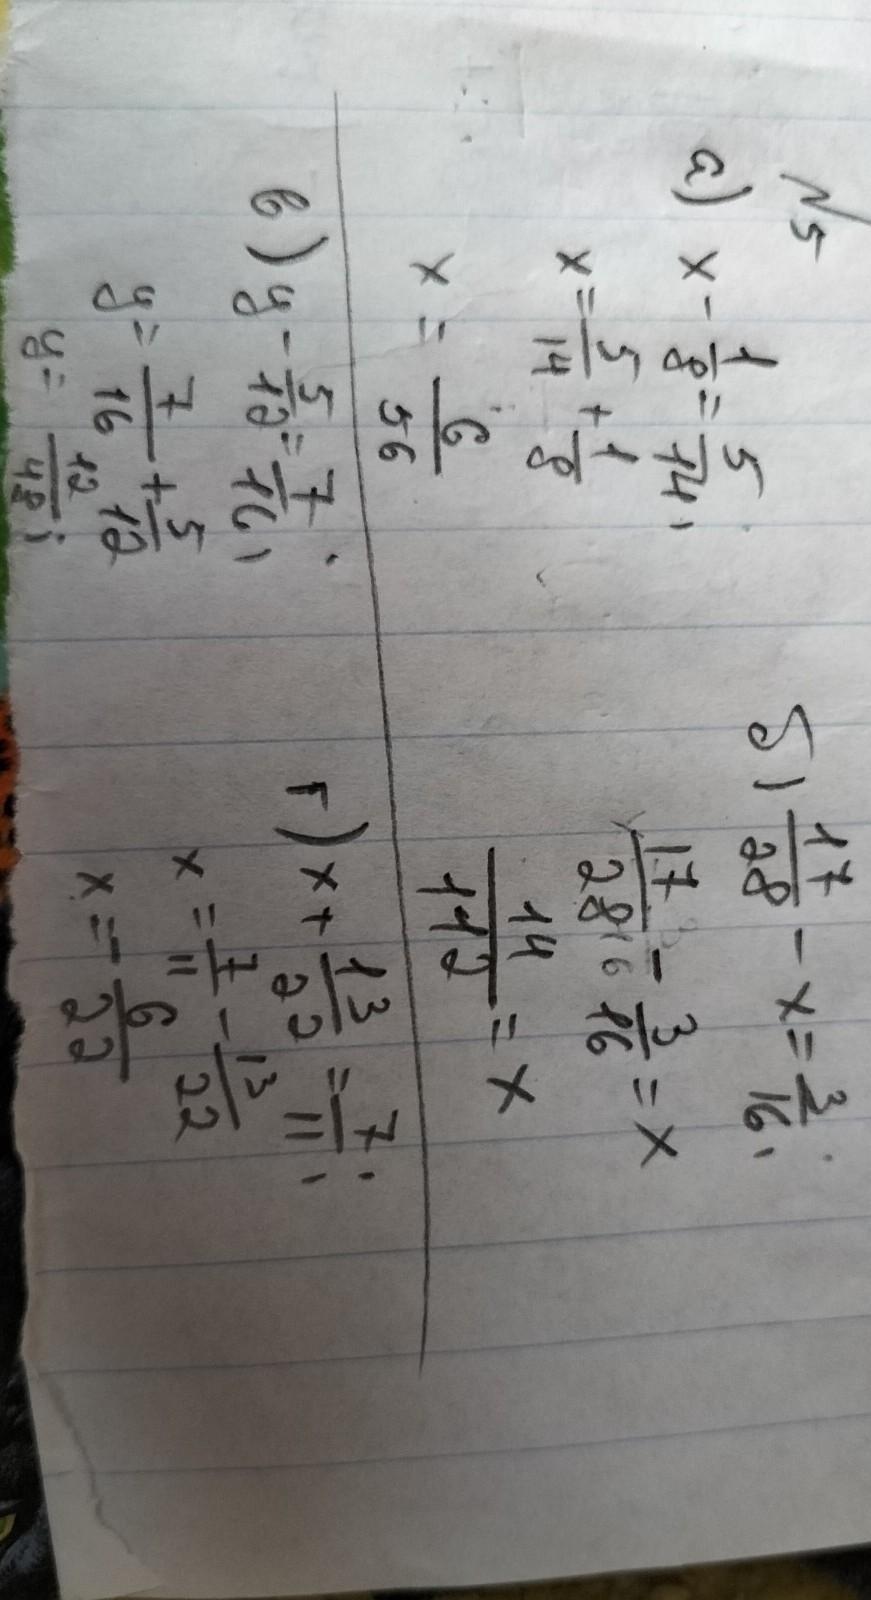 №5
а) x - 1/8 = 5/14;
x = 5/14 + 1/8
x = 6/56
б) 17/28 - x = 3/16;
17/28 - 3/16 = x
14/112 = x
в) y - 5/12 = 7/16;
y = 7/16 + 5/12
y = 12/48;
г) x + 13/22 = 7/11;
x = 7/11 - 13/22
x = - 6/22